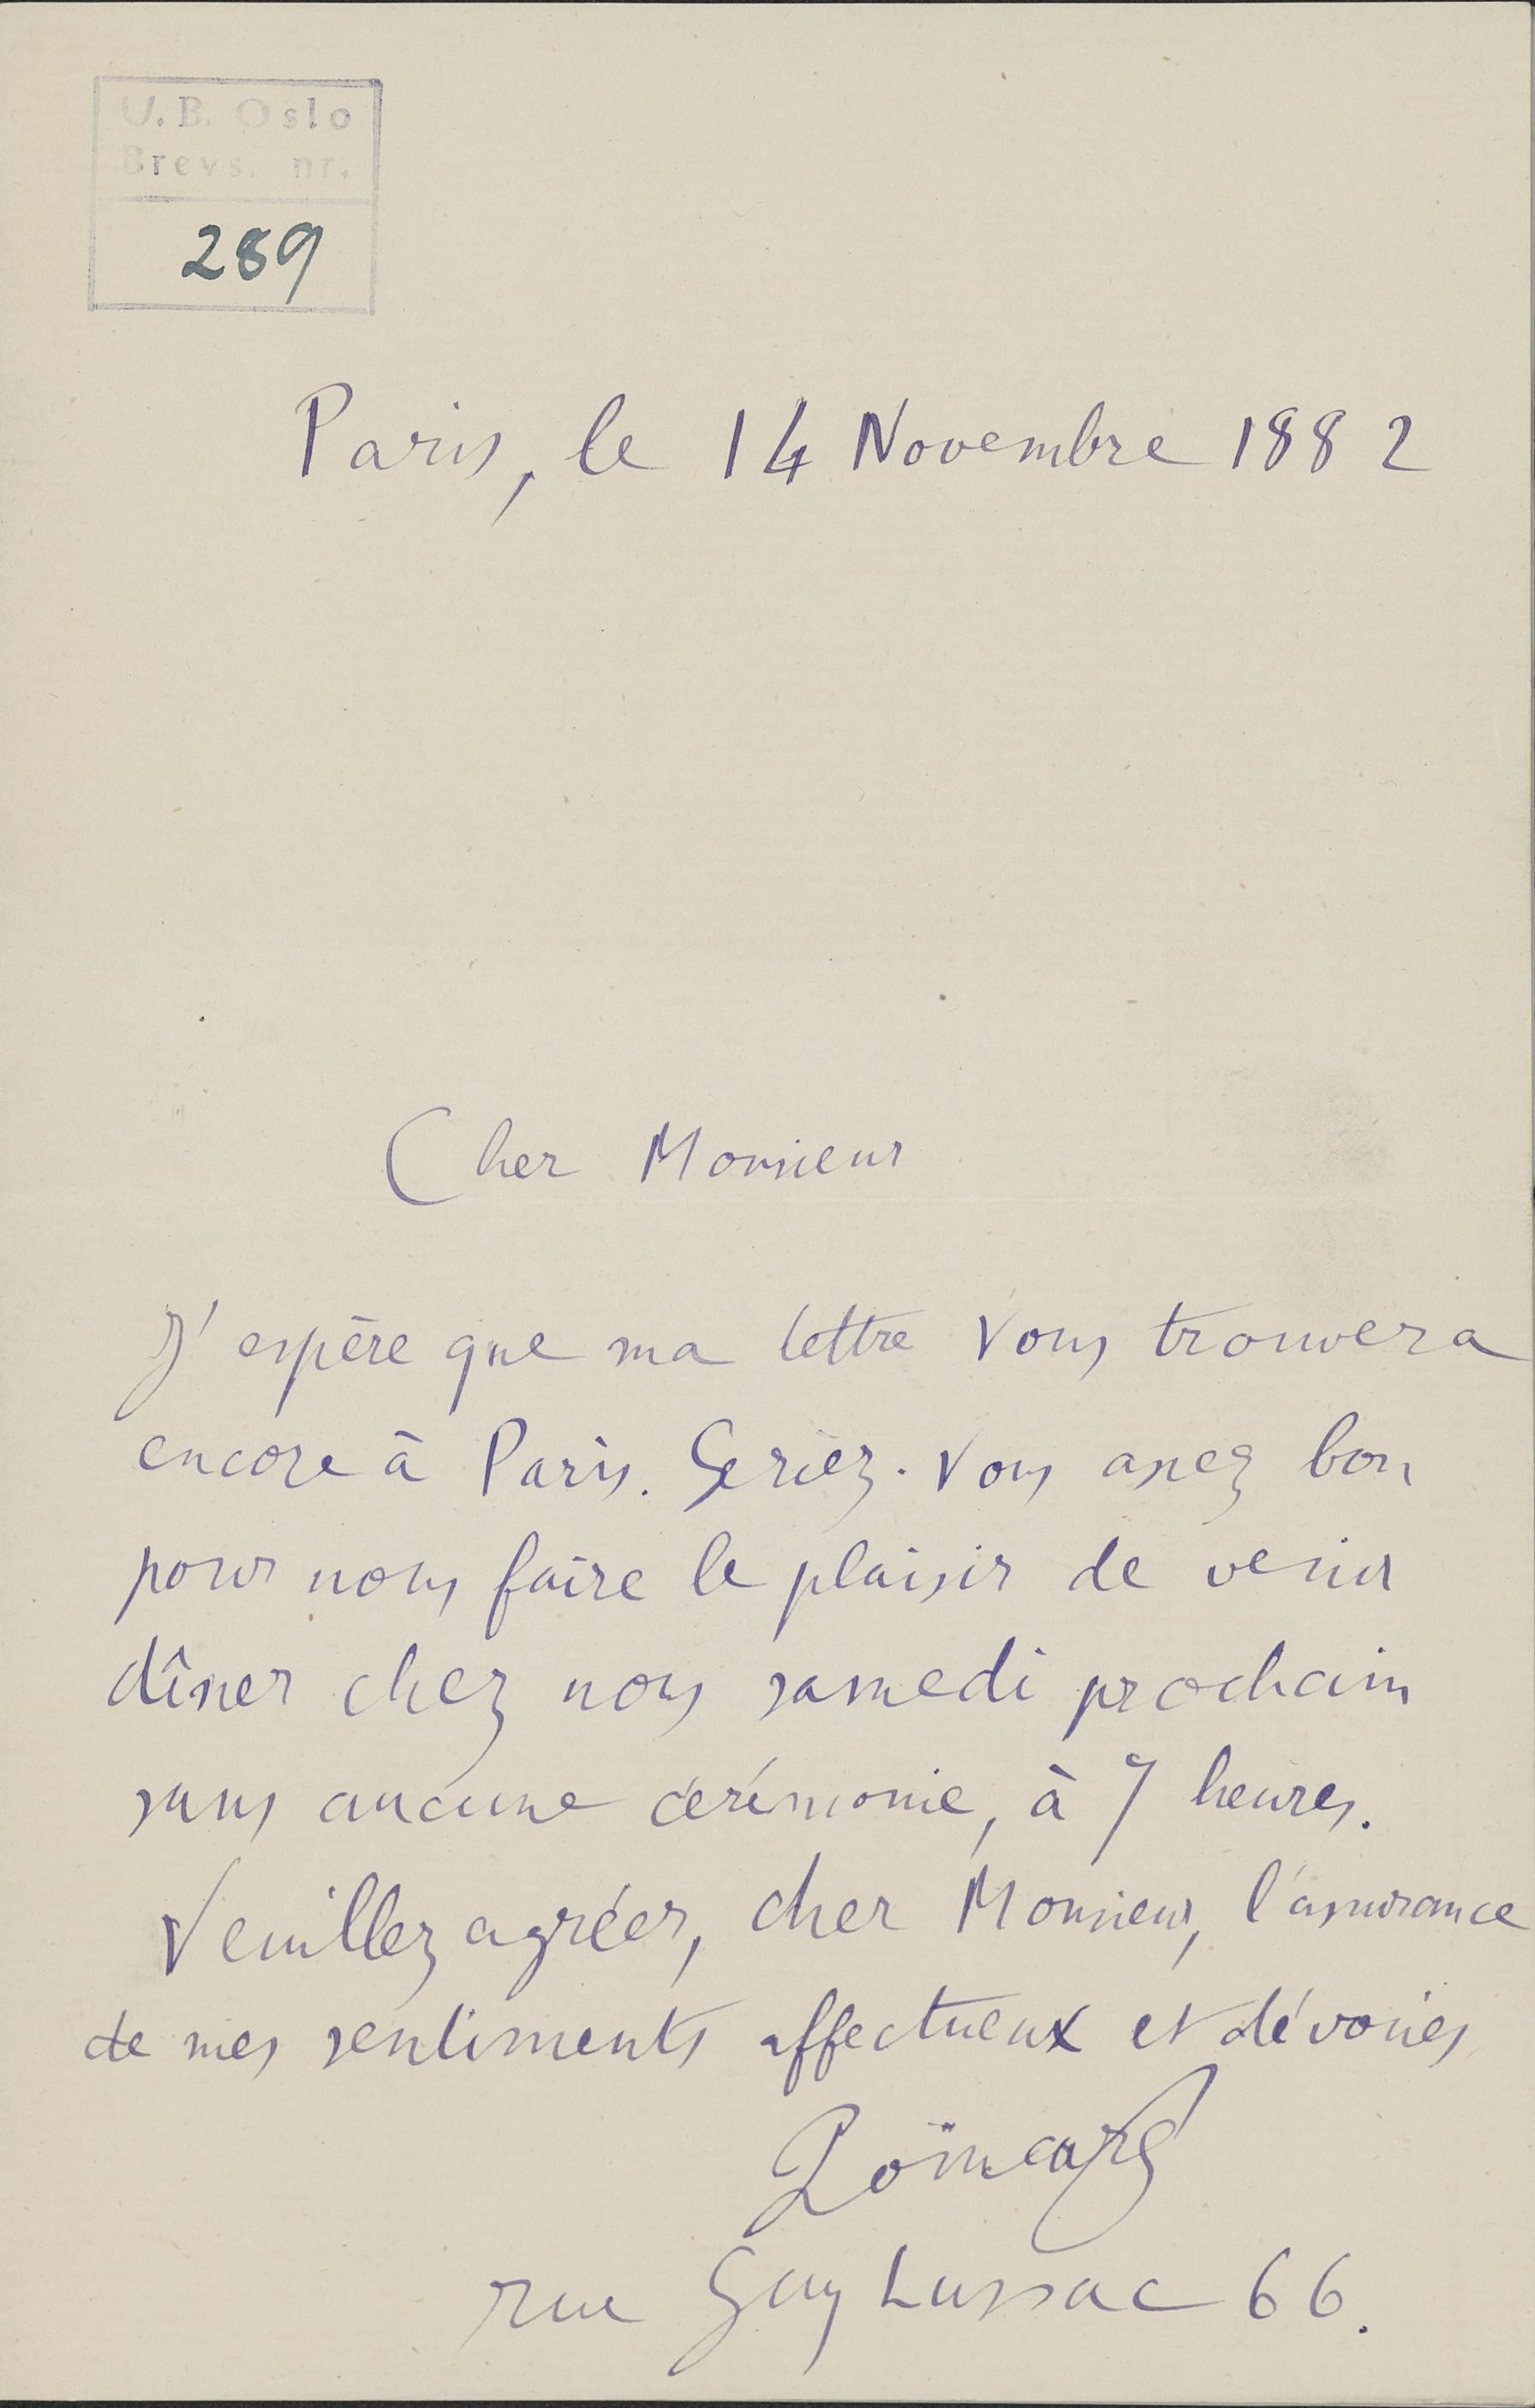 U.B. Oslo
Brevs. nr.
289
Paris, le 14 Novembre 1882
Cher Monsieur
J'espère que ma lettre vous trouvera
encore à Paris. Seriez-vous assez bon
pour nous faire le plaisir de venir
dîner chez nous samedi prochain
sans aucune cérémonie, à 7 heures.
Veuillez agréer, cher Monsieur, l'assurance
de mes sentiments affectueux et dévoués
Poincaré
rue Gay Lussac 66.